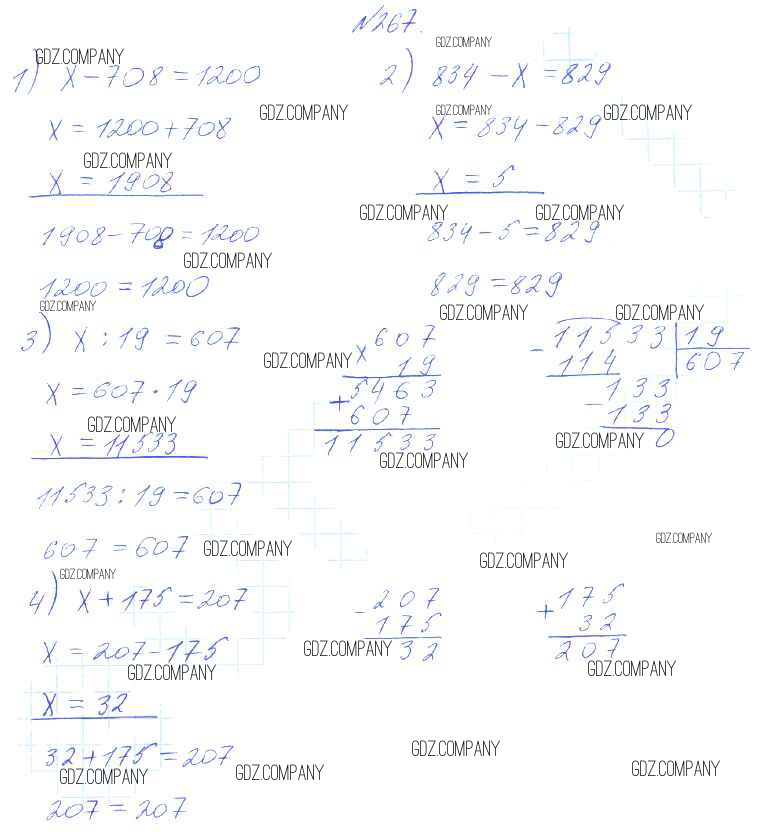 №267.
1) x - 708 = 1200
x = 1200 + 708
x = 1908
1908 - 708 = 1200
1200 = 1200
2) 834 - x = 829
x = 834 - 829
x = 5
834 - 5 = 829
829 = 829
3) x : 19 = 607
x = 607 · 19
x = 11533
11533 : 19 = 607
607 = 607
607
x 19
5463
+ 607
11533
- 11533 | 19
114 | 607
133
- 133
0
4) x + 175 = 207
x = 207 - 175
x = 32
32 + 175 = 207
207 = 207
- 207
175
32
+ 175
32
207
GDZ.COMPANY
GDZ.COMPANY
GDZ.COMPANY
GDZ.COMPANY
GDZ.COMPANY
GDZ.COMPANY
GDZ.COMPANY
GDZ.COMPANY
GDZ.COMPANY
GDZ.COMPANY
GDZ.COMPANY
GDZ.COMPANY
GDZ.COMPANY
GDZ.COMPANY
GDZ.COMPANY
GDZ.COMPANY
GDZ.COMPANY
GDZ.COMPANY
GDZ.COMPANY
GDZ.COMPANY
GDZ.COMPANY
GDZ.COMPANY
GDZ.COMPANY
GDZ.COMPANY
GDZ.COMPANY
GDZ.COMPANY
GDZ.COMPANY